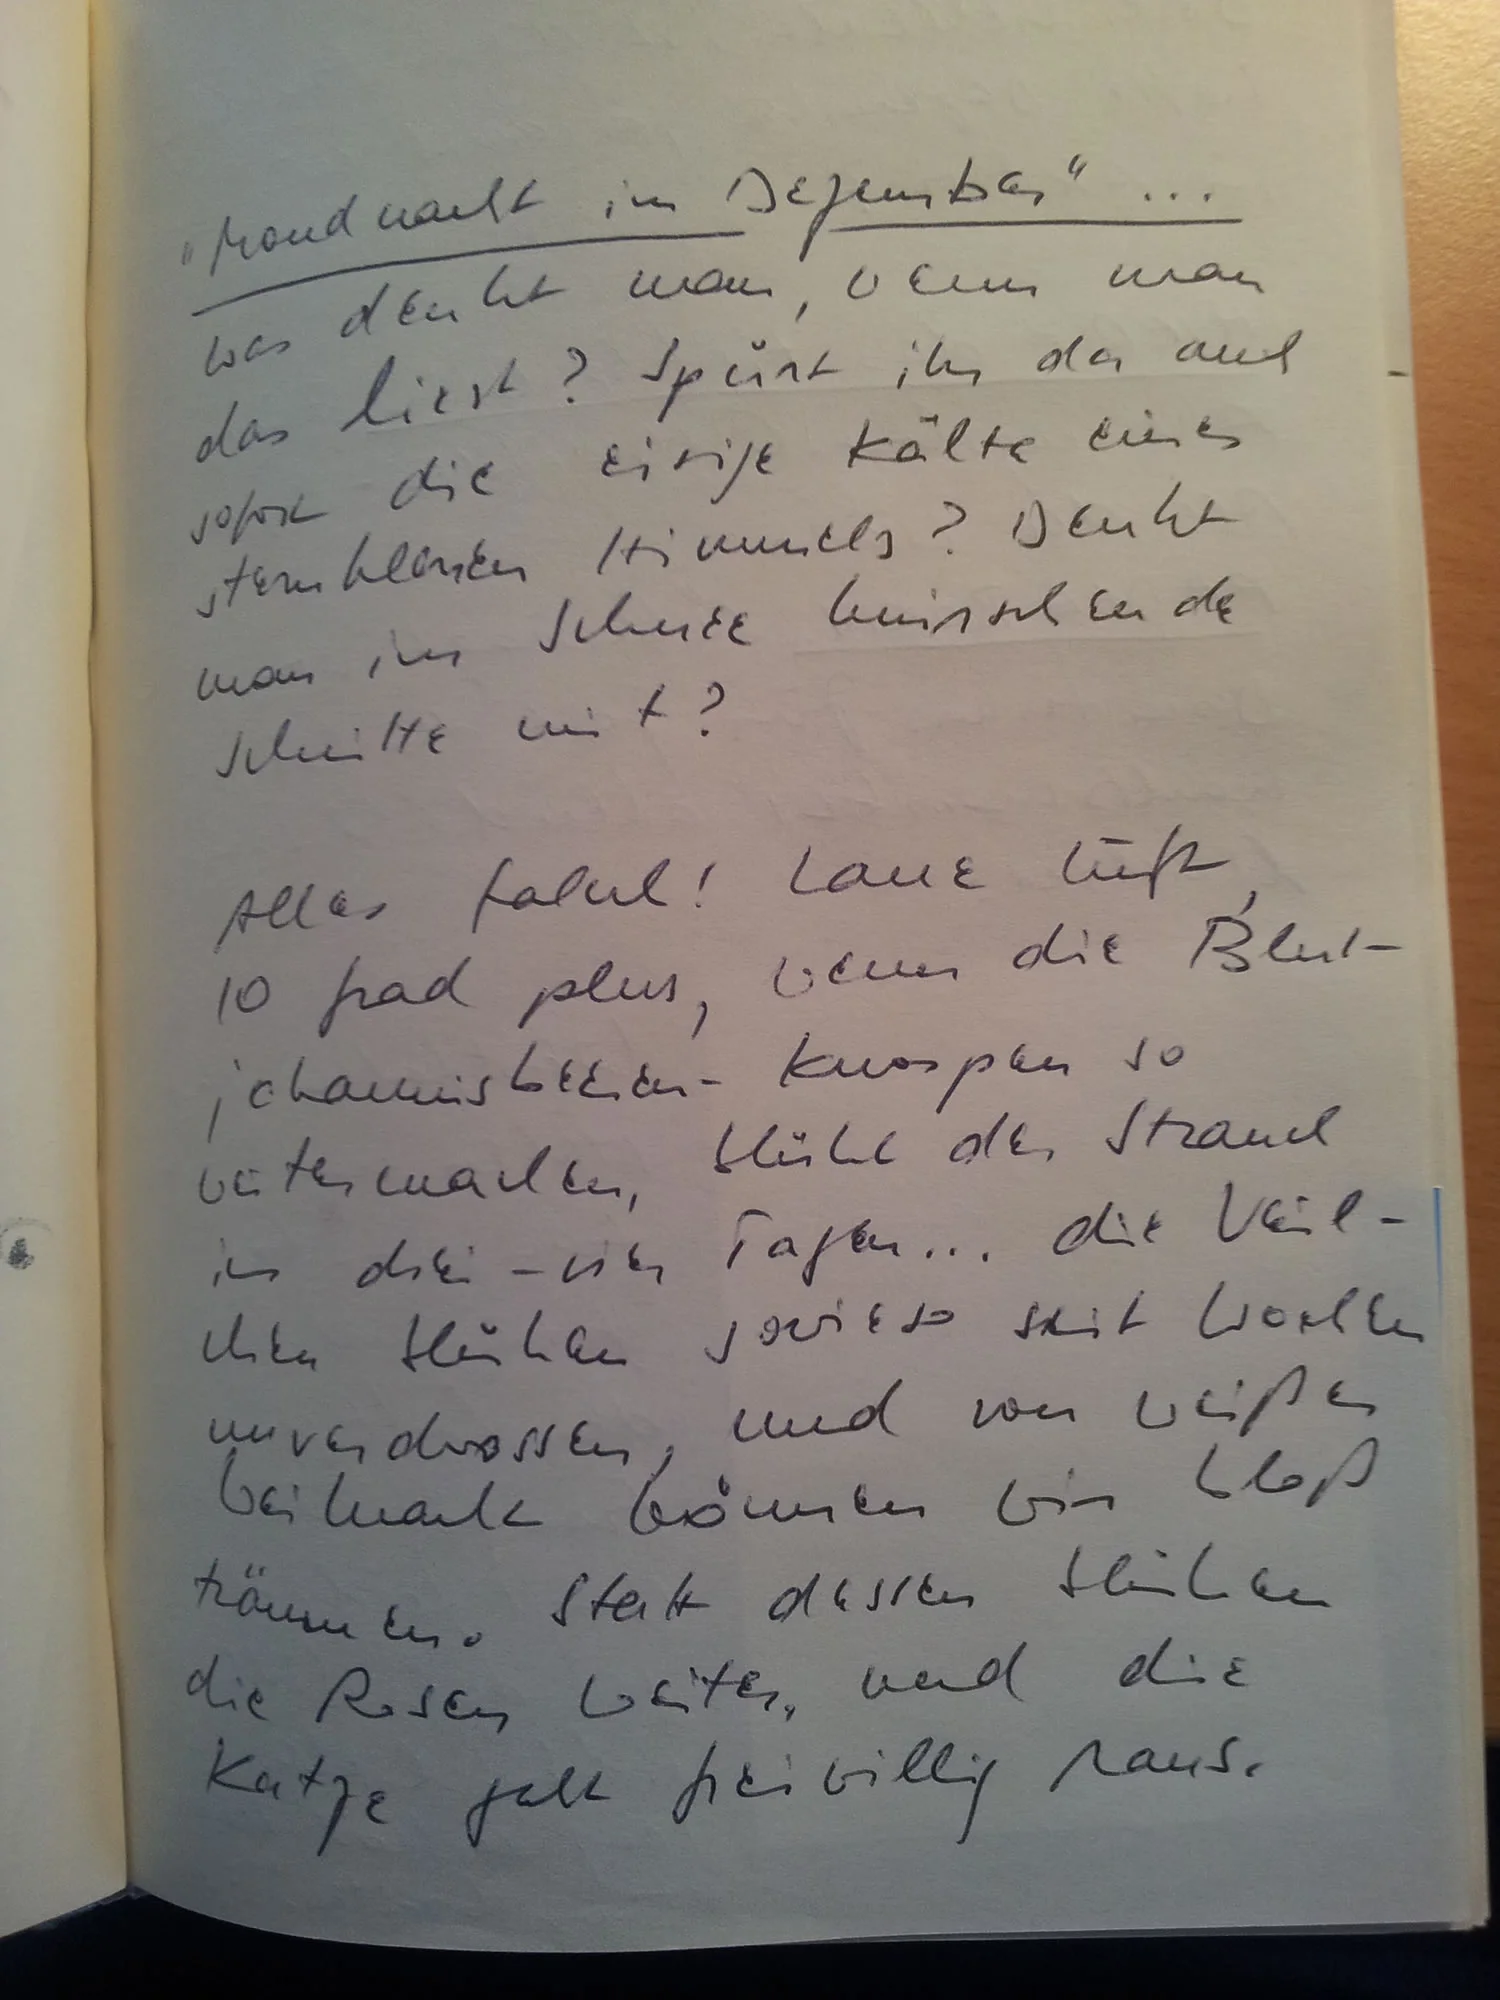 „Mondnacht im Dezember“ ...
was denkt man, wenn man
das liest? Spürt ihr da auch
sofort die eisige Kälte eines
sternklaren Himmels? Denkt
man im Schnee knirschende
Schritte mit?
Alles falsch! Laue Luft,
10 grad plus, wenn die Blut-
johannisbeeren- Knospen so
weitermachen, blüht der Strauch
in drei-vier Tagen... die Veil-
chen blühen sowieso seit Wochen
unverdrossen, und von weißer
Weihnacht können wir bloß
träumen. Statt dessen blühen
die Rosen weiter, und die
Katze geht freiwillig raus.